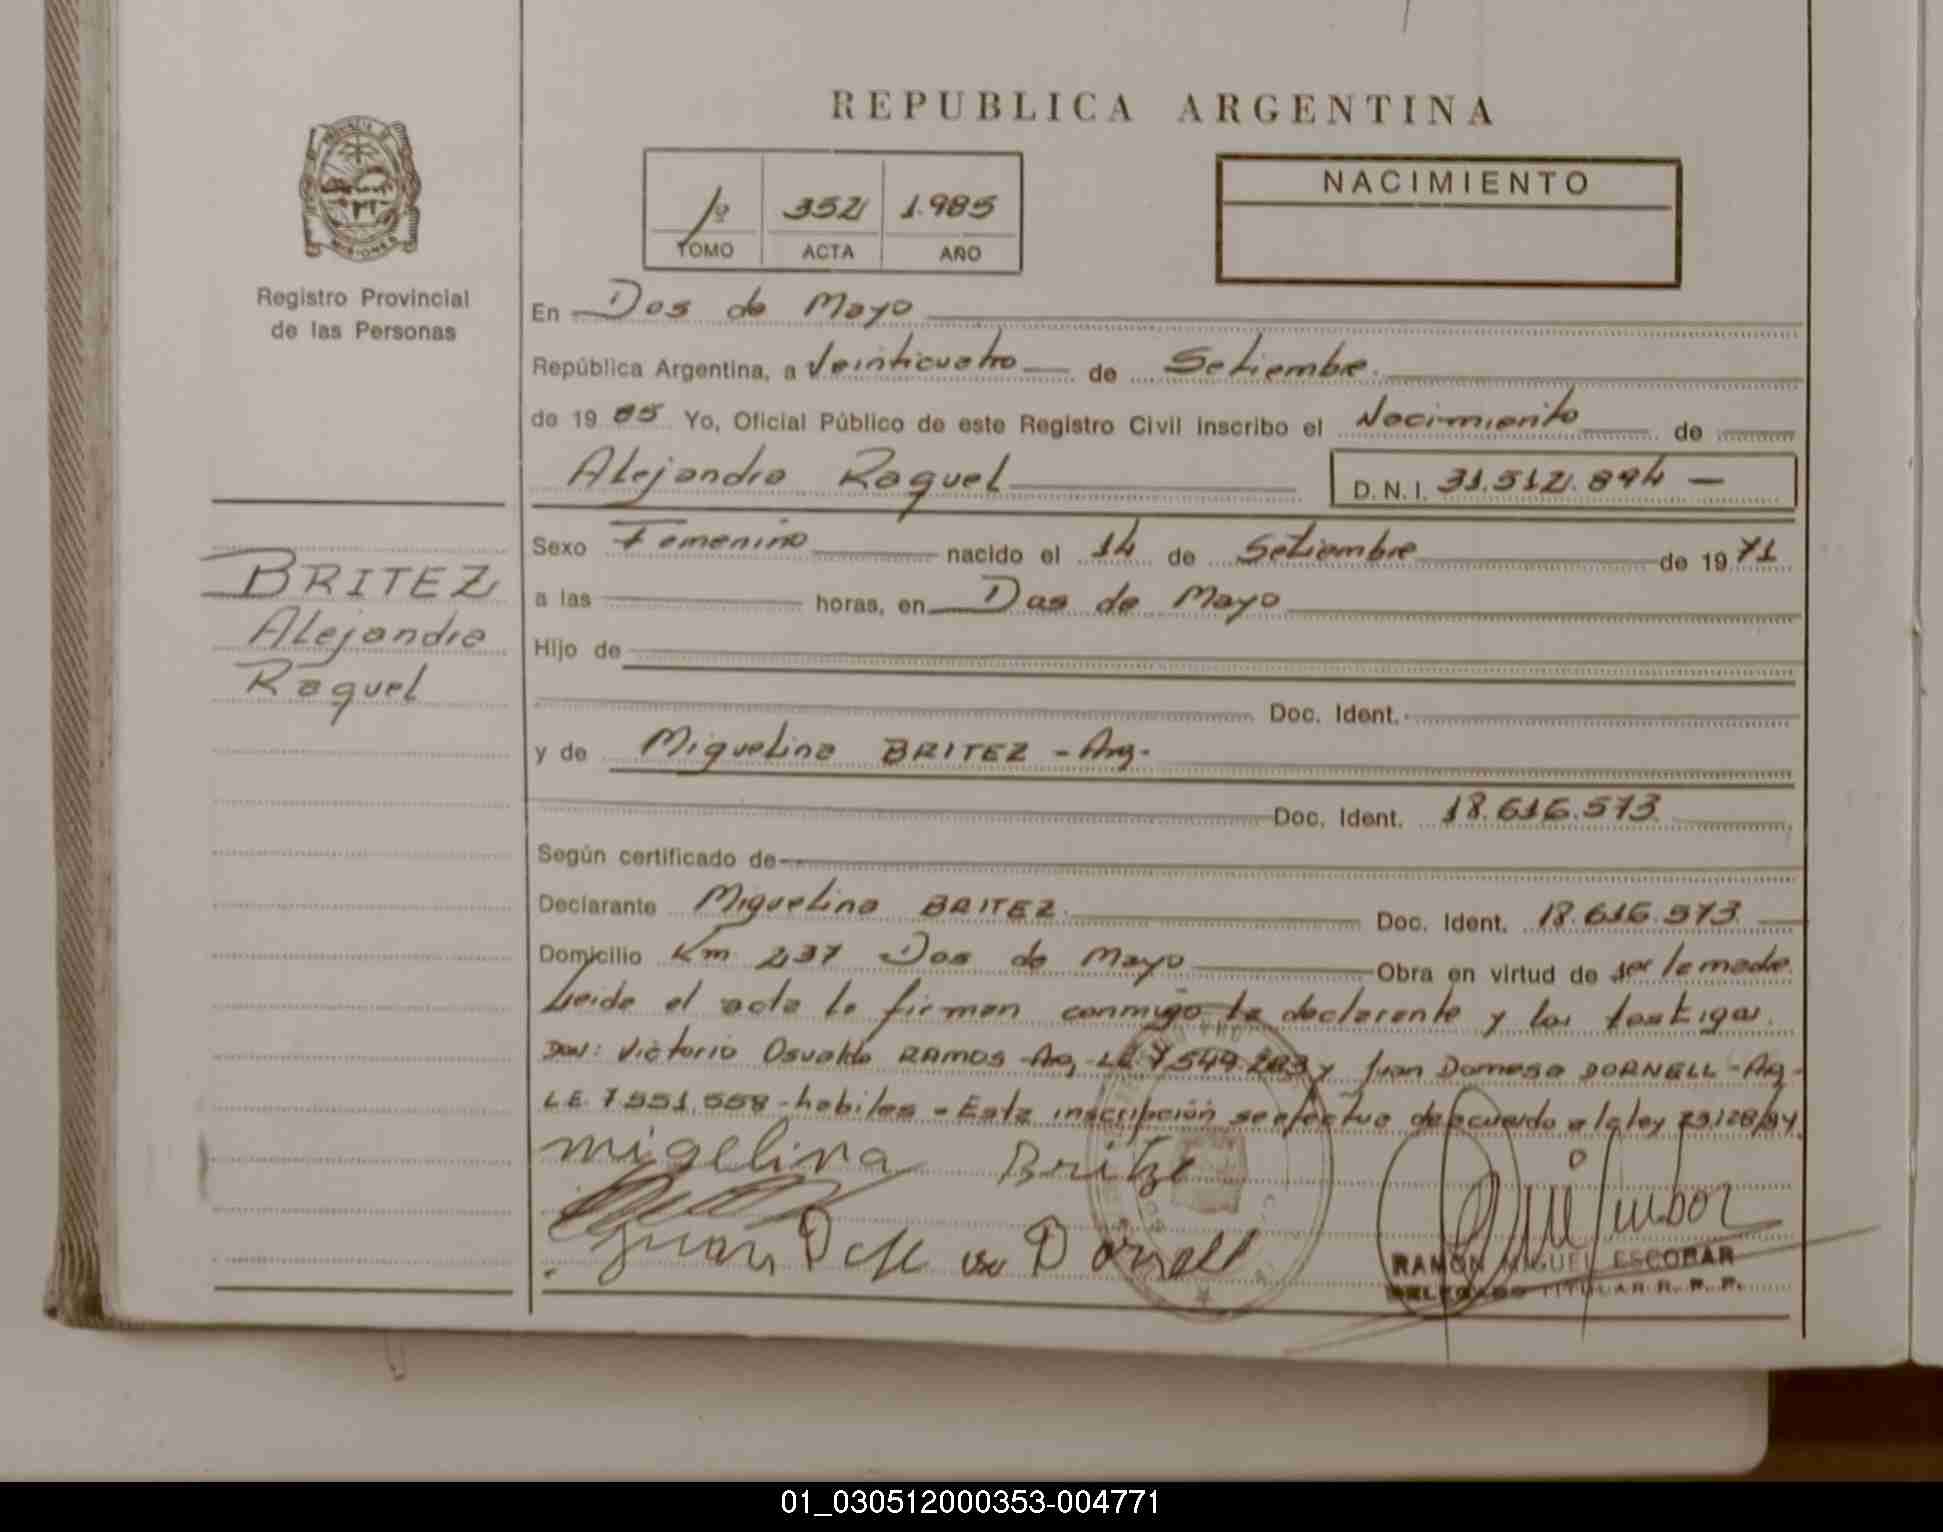 REPUBLICA ARGENTINA
PROVINCIA DE
MISIONES
Registro Provincial
de las Personas
1º 352 1.985
TOMO ACTA AÑO
NACIMIENTO
En Dos de Mayo
República Argentina, a Veinticuatro de Setiembre.
de 19 85 Yo, Oficial Público de este Registro Civil inscribo el Nacimiento de
Alejandra Raquel D.N.I. 31.512.894 —
BRITEZ
Alejandra
Raquel
Sexo Femenino nacido el 14 de Setiembre de 19 71
a las horas, en Dos de Mayo
Hijo de
Doc. Ident.
y de Miguelina BRITEZ - Arg.
Doc. Ident. 18.616.573
Según certificado de
Declarante Miguelina BRITEZ. Doc. Ident. 18.616.573
Domicilio Km 237 Dos de Mayo Obra en virtud de ser la madre.
Leida el acta la firman conmigo la declarante y los testigos.
DON: Victorio Osvaldo RAMOS -Arg. LE 7.549.283 y Juan Damaso DORNELL - Arg -
L.E. 7.551.558 - habiles - Esta inscripción se efectua de acuerdo a la ley 23.128/84.
migelina Britze
Juan Dornell
RAMÓN MIGUEL ESCOBAR
DELEGADO TITULAR R. P. P.
01_030512000353-004771